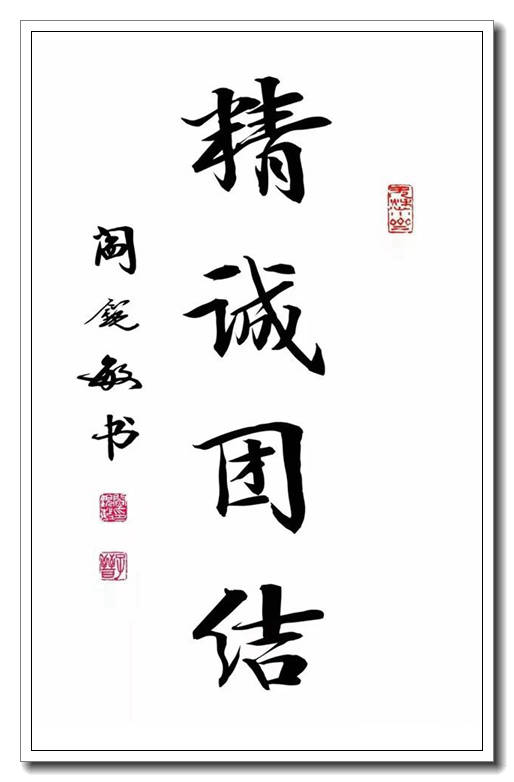 精诚团结
阎锐敏书